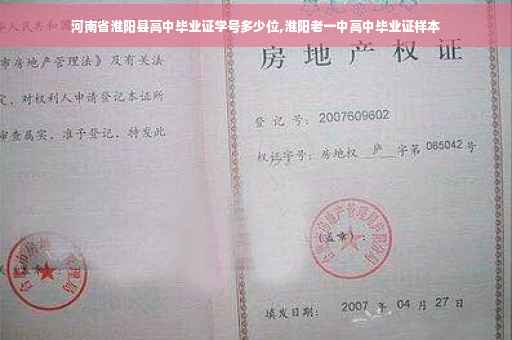 河南省淮阳县高中毕业证学号多少位,淮阳老一中高中毕业证样本
人民共和国
市房地产管理法》及有关法
定，对权利人申请登记本证所
审查属实，准予登记，特发此
房地产权证
登记号：2007609602
权证字号：房地权 庐 字第 085042 号
(盖章)：
填发日期： 2007 年 04 月 27 日